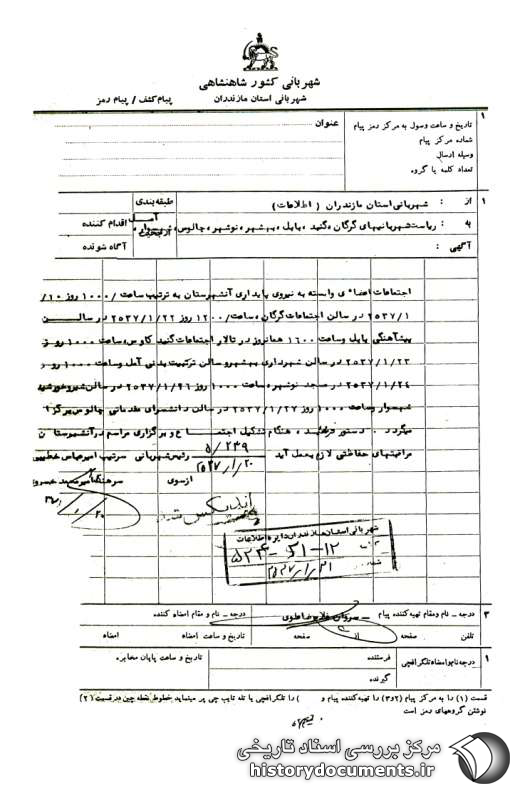 شهربانی کشور شاهنشاهی
شهربانی استان مازندران
پیام کشف / پیام رمز
۱
تاریخ و ساعت وصول به مرکز رمز پیام
شماره مرکز پیام
وسیله ارسال
تعداد کلمه یا گروه
عنوان
۱
از : شهربانی استان مازندران ( اطلاعات )
طبقه بندی
به : ریاست شهربانیهای گرگان، گنبد، بابل، بهشهر، نوشهر، چالوس، شهسوار، آمل
اقدام کننده
آگهی :
آگاه شونده
اجتماعات اعضاء ی وابسته به نیروی پایداری آنشهرستان به ترتیب ساعت /۱۰۰۰ روز ۱۰/
۲۵۳۷/۱ در سالن اجتماعات گرگان، ساعت/۱۲۰۰ روز ۲۵۳۷/۱/۲۲ در سالن
پیشآهنگی بابل وساعت ۱۶۰۰ همانروز در تالار اجتماعات گنبد کاوس، ساعت ۱۰۰۰ روز
۲۵۳۷/۱/۲۳ در سالن شهرداری بهشهر وسالن تربیت بدنی آمل وساعت ۱۰۰۰ روز
۲۵۳۷/۱/۲۴ در مسجد نوشهر، ساعت ۱۰۰۰ روز ۲۵۳۷/۱/۲۶ در سالن شیروخورشید
شهسوار وساعت ۱۰۰۰ روز ۲۵۳۷/۱/۲۷ در سالن دانشسرای مقدماتی چالوس برگزا
میگردد . دستور فرمائید، هنگام تشکیل اجتماع و برگزاری مراسم در آنشهرستان
مراقبتهای حفاظتی لازم بعمل آید
۵/۲۳۹
۲۵۳۷/۱/۲۰
رئیس شهربانی
سرتیپ امیرعباس خطیبی
ازسوی
سرهنگ
شهربانی استان مازندران دایره اطلاعات
۱۲-۵۱-۵۲۴
شماره
۲۵۳۷/۱/۲۱
۳
درجه - نام ومقام تهیه کننده پیام
درجه - نام و مقام امضاء کننده
تلفن
صفحه
از
صفحه
تاریخ و ساعت امضاء
امضاء
۱
درجه نام وامضاء تلگرافچی
فرستنده
گیرنده
تاریخ و ساعت پایان مخابره
قسمت (۱) را به مرکز پیام (۲و۳) را تهیه کننده پیام و ( ) را تلگرافچی یا تله تایپ چی پر مینماید خطوط نقطه چین در قسمت (۲)
نوشتن گروههای رمز است
مرکز بررسی اسناد تاریخی
historydocuments.ir